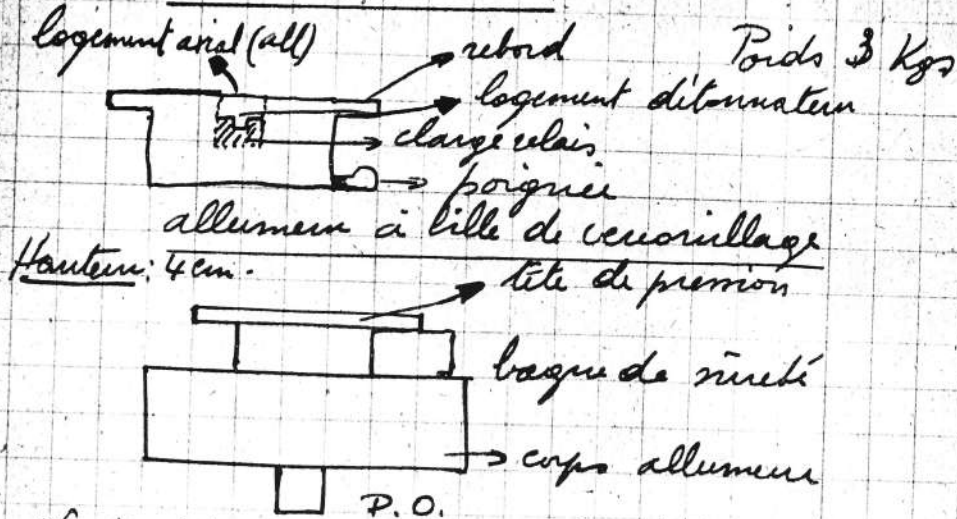 logement axial (all)
rebord
Poids 3 Kgs
logement détonnateur
charge relais
poignée
allumeur à bille de verrouillage
Hauteur: 4 cm.
tête de pression
bague de sûreté
corps allumeur
P.O.